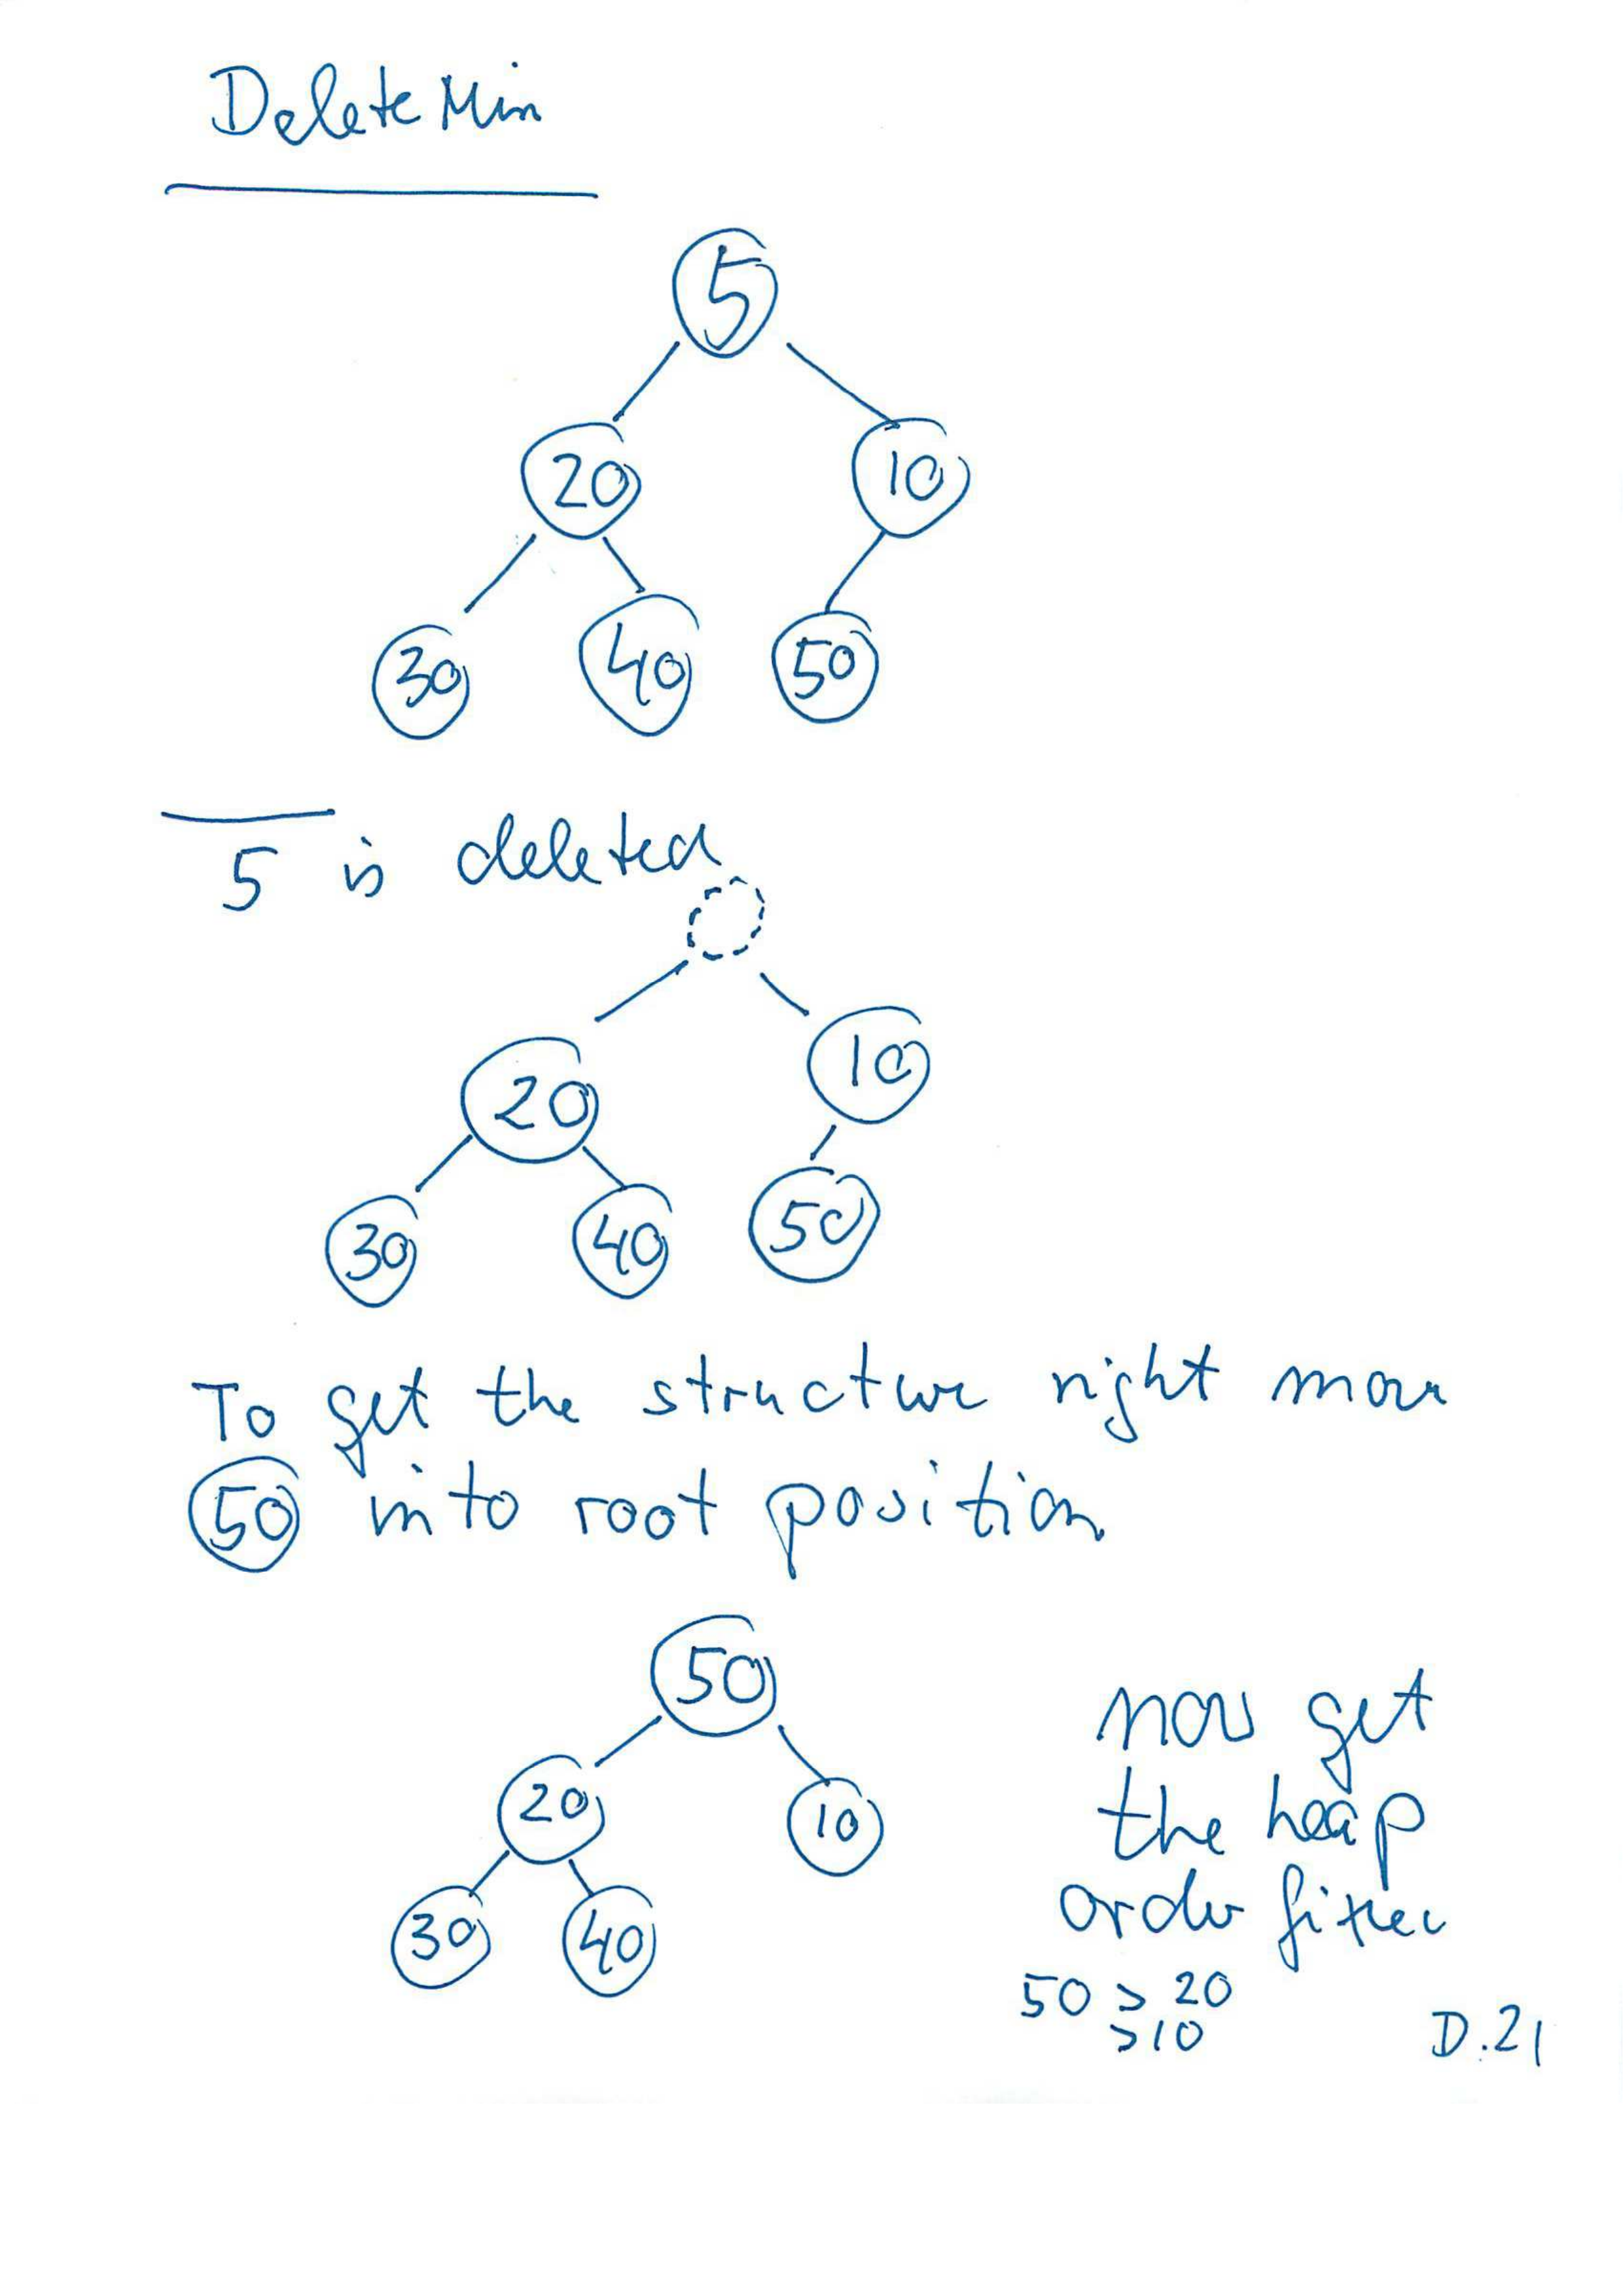 Delete Min
5
20 10
30 40 50
5 is deleted
20 10
30 40 50
To get the structure right move
50 into root position
50
20 10
30 40
now get
the heap
order fixed
50 > 20
> 10
D.21